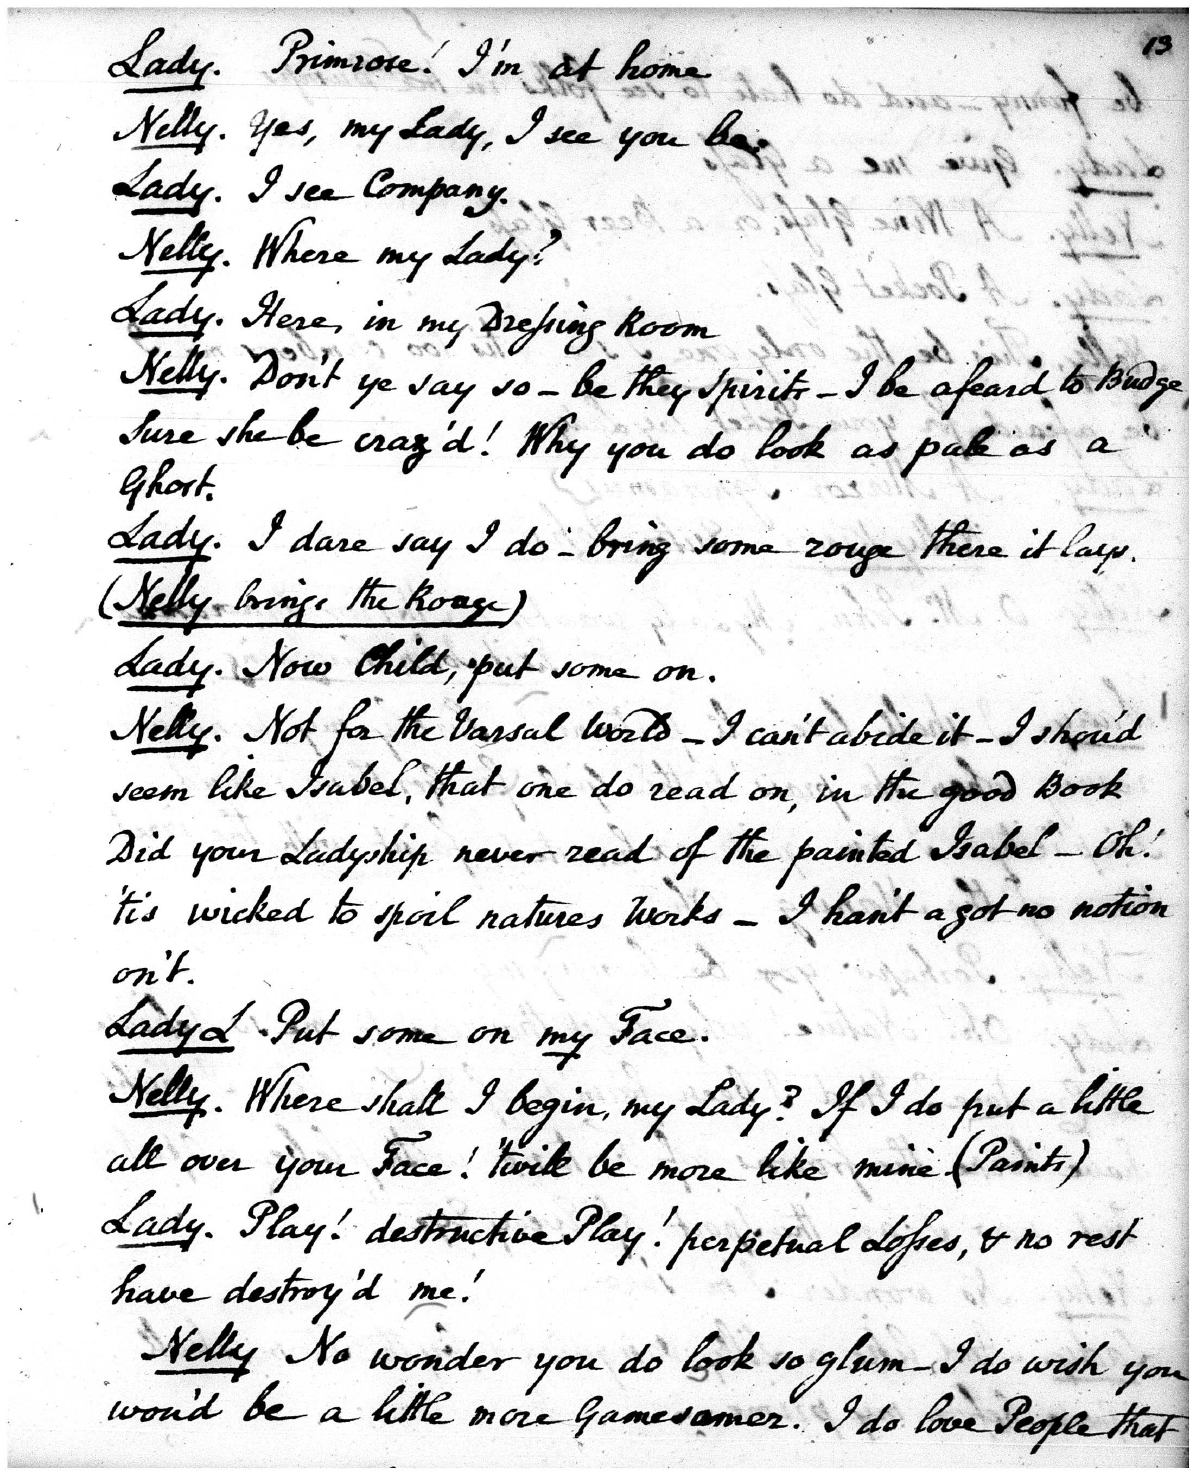 13
Lady. Primrose! I'm at home
Nelly. Yes, my Lady, I see you be.
Lady. I see Company.
Nelly. Where my Lady?
Lady. Here, in my Dreſsing Room
Nelly. Don't ye say so – be they Spirits – I be afeard to Budge
Sure she be craz'd! Why you do look as pale as a
Ghost.
Lady. I dare say I do – bring some rouge there it lays.
(Nelly brings the Rouge)
Lady. Now Child, put some on.
Nelly. Not for the Varsal World – I can't abide it – I shou'd
seem like Isabel, that one do read on, in the good Book
Did your Ladyship never read of the painted Isabel – Oh!
'tis wicked to spoil natures Works – I han't a got no notion
on't.
Lady L Put some on my Face.
Nelly. Where shall I begin, my Lady? If I do put a little
all over your Face! 'twill be more like mine (Paints)
Lady. Play! destructive Play! perpetual Loſses, & no rest
have destroy'd me!
Nelly No wonder you do look so glum – I do wish you
wou'd be a little more Gamesomer. I do love People that